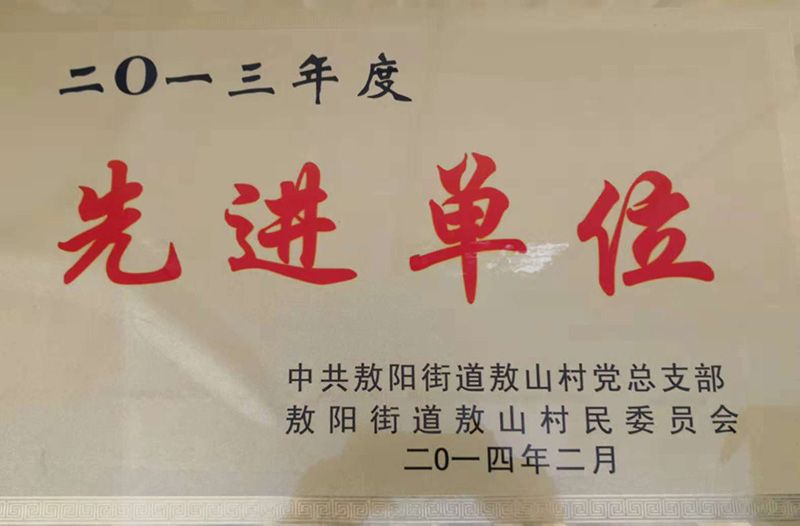 二O一三年度
先进单位
中共敖阳街道敖山村党总支部
敖阳街道敖山村民委员会
二O一四年二月